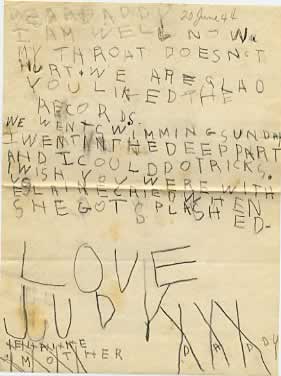 DEAR DADDY 20 June 44
I AM WELL NOW.
MY THROAT DOESNOT
HURT. WE ARE GLAD
YOU LIKED THE
RECORDS.
WE WENT SWIMMING SUNDAY
I WENT IN THE DEEP PART
AND I COULD DO TRICKS.
I WISH YOU WERE WITH
US ELAINE CRIED WHEN
SHE GOT SPLASHED
ED.
LOVE
JUDY
XXX
DADDY
MOTHER